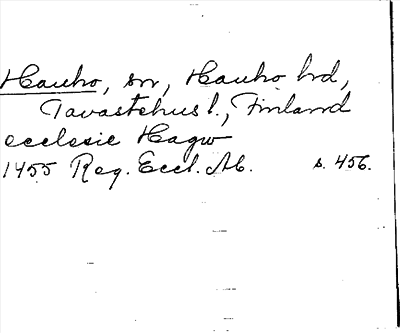 Hauho, sn, Hauho hd,
Tavastehus l., Finland
ecclesie Hagw
1455 Reg. Eccl. Ab. s. 456.